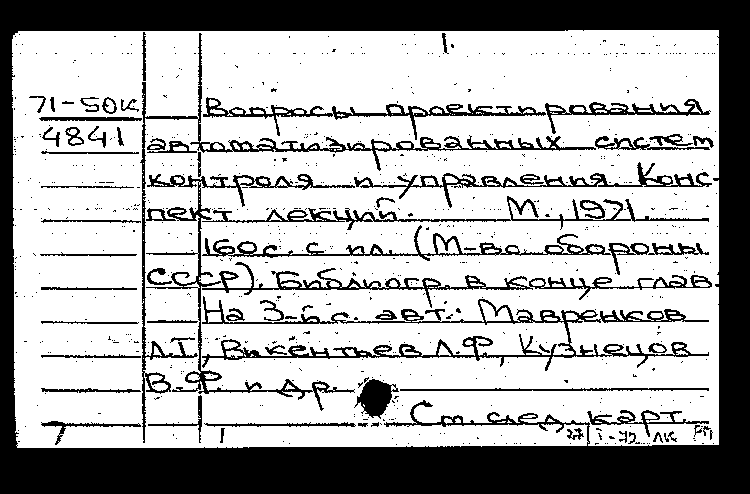 1.
71-50к Вопросы проектирования
4841 автоматизированных систем
контроля и управления. Конс-
пект лекций. М., 1971.
160с. с ил. (М-во обороны
СССР). Библиогр. в конце глав.
На 3-й с. авт.: Мавренков
Л.Т., Викентьев Л.Ф., Кузнецов
В.Ф. и др.
См. след. карт.
7 1 27 I-72 ЛК